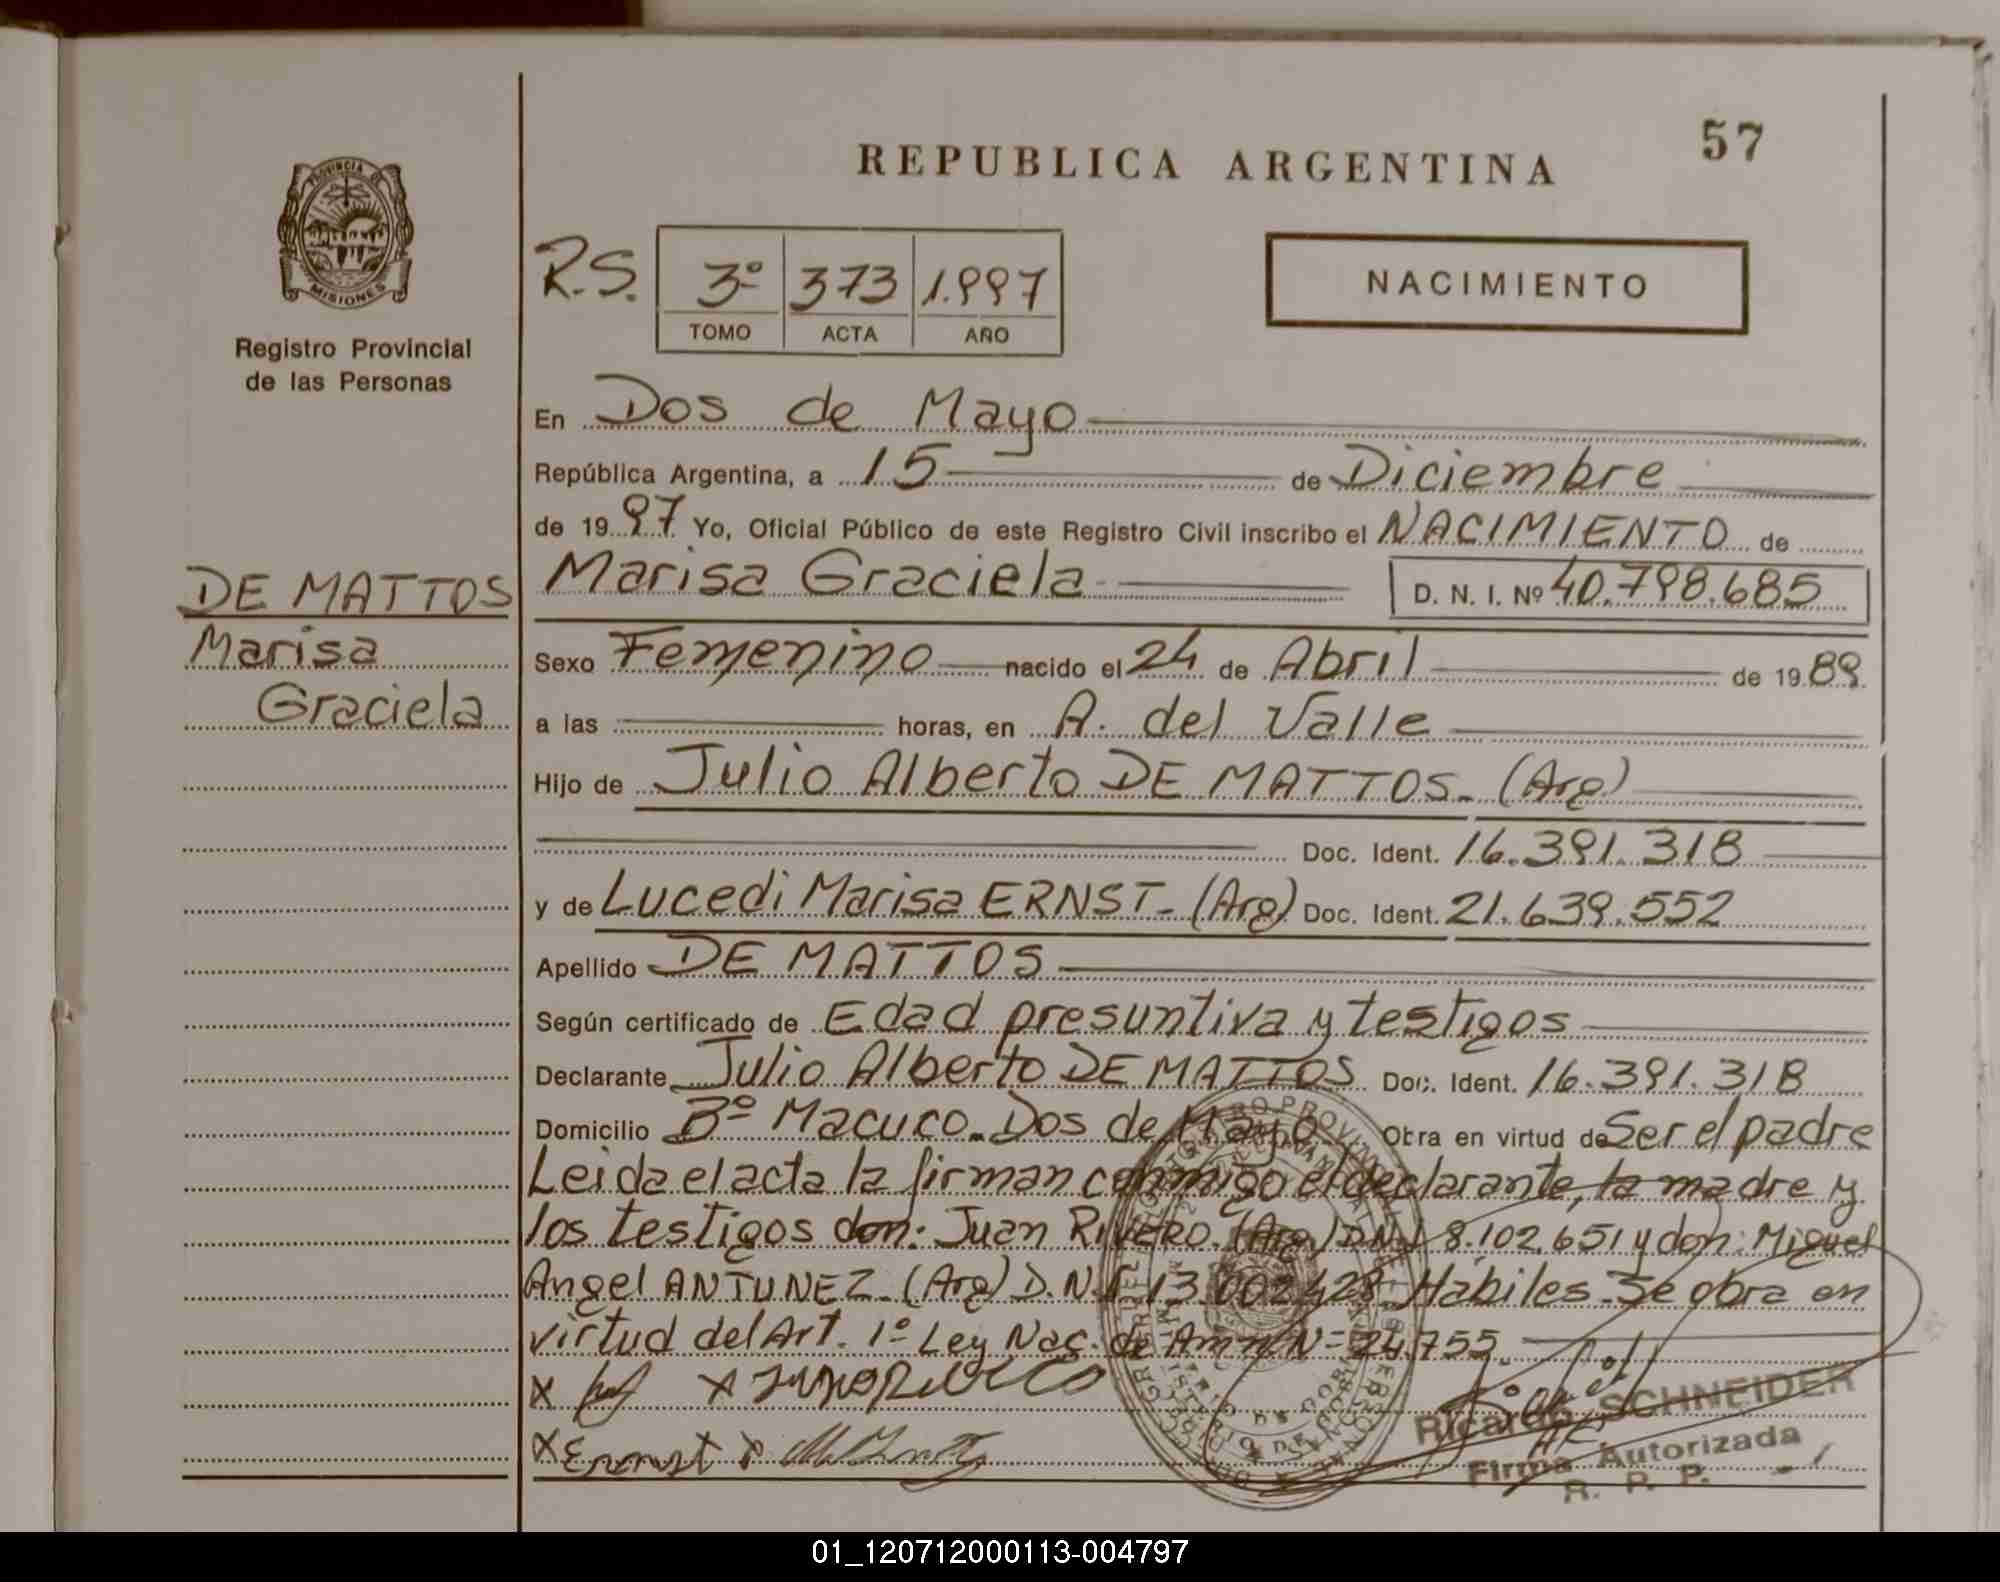 57
REPUBLICA ARGENTINA
PROVINCIA DE
MISIONES
Registro Provincial
de las Personas
R.S. 3º 373 1.997
TOMO ACTA AÑO
NACIMIENTO
En Dos de Mayo
República Argentina, a 15 de Diciembre
de 1997 Yo, Oficial Público de este Registro Civil inscribo el NACIMIENTO de
DE MATTOS
Marisa
Graciela
Marisa Graciela D. N. I. Nº 40.798.685
Sexo Femenino nacido el 24 de Abril de 1989
a las horas, en A. del Valle
Hijo de Julio Alberto DE MATTOS. (Arg)
Doc. Ident. 16.391.318
y de Lucedi Marisa ERNST. (Arg) Doc. Ident. 21.639.552
Apellido DE MATTOS
Según certificado de Edad presuntiva y testigos
Declarante Julio Alberto DE MATTOS Doc. Ident. 16.391.318
Domicilio Bº Macuco. Dos de Mayo Obra en virtud de Ser el padre
Leida el acta la firman conmigo el declarante, la madre y
los testigos don: Juan RIVERO. (Arg) D.N.I 8.102.651 y don: Miguel
Angel ANTUNEZ. (Arg) D.N.I 13.002.428. Hábiles. Se obra en
virtud del Art. 1º Ley Nac. de Amn/Nº 24.755.
X X
X Ernst X
Ricardo SCHNEIDER
Firma Autorizada
R. P. P.
01_120712000113-004797